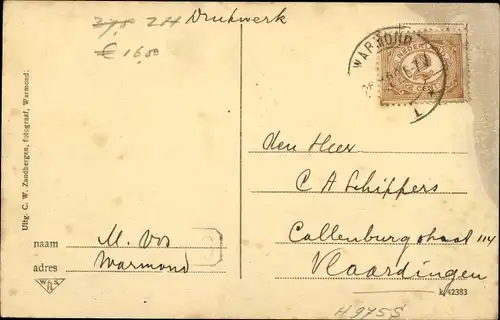 ZH Drukwerk
€ 16,00
WARMOND
NEDERLAND
CENT
Uitg. C. W. Zandbergen, fotograaf, Warmond.
den Heer
C A Schippers
Callenburgstraat 114
Vlaardingen
naam M. Vos
adres Warmond
k/42383
H9755